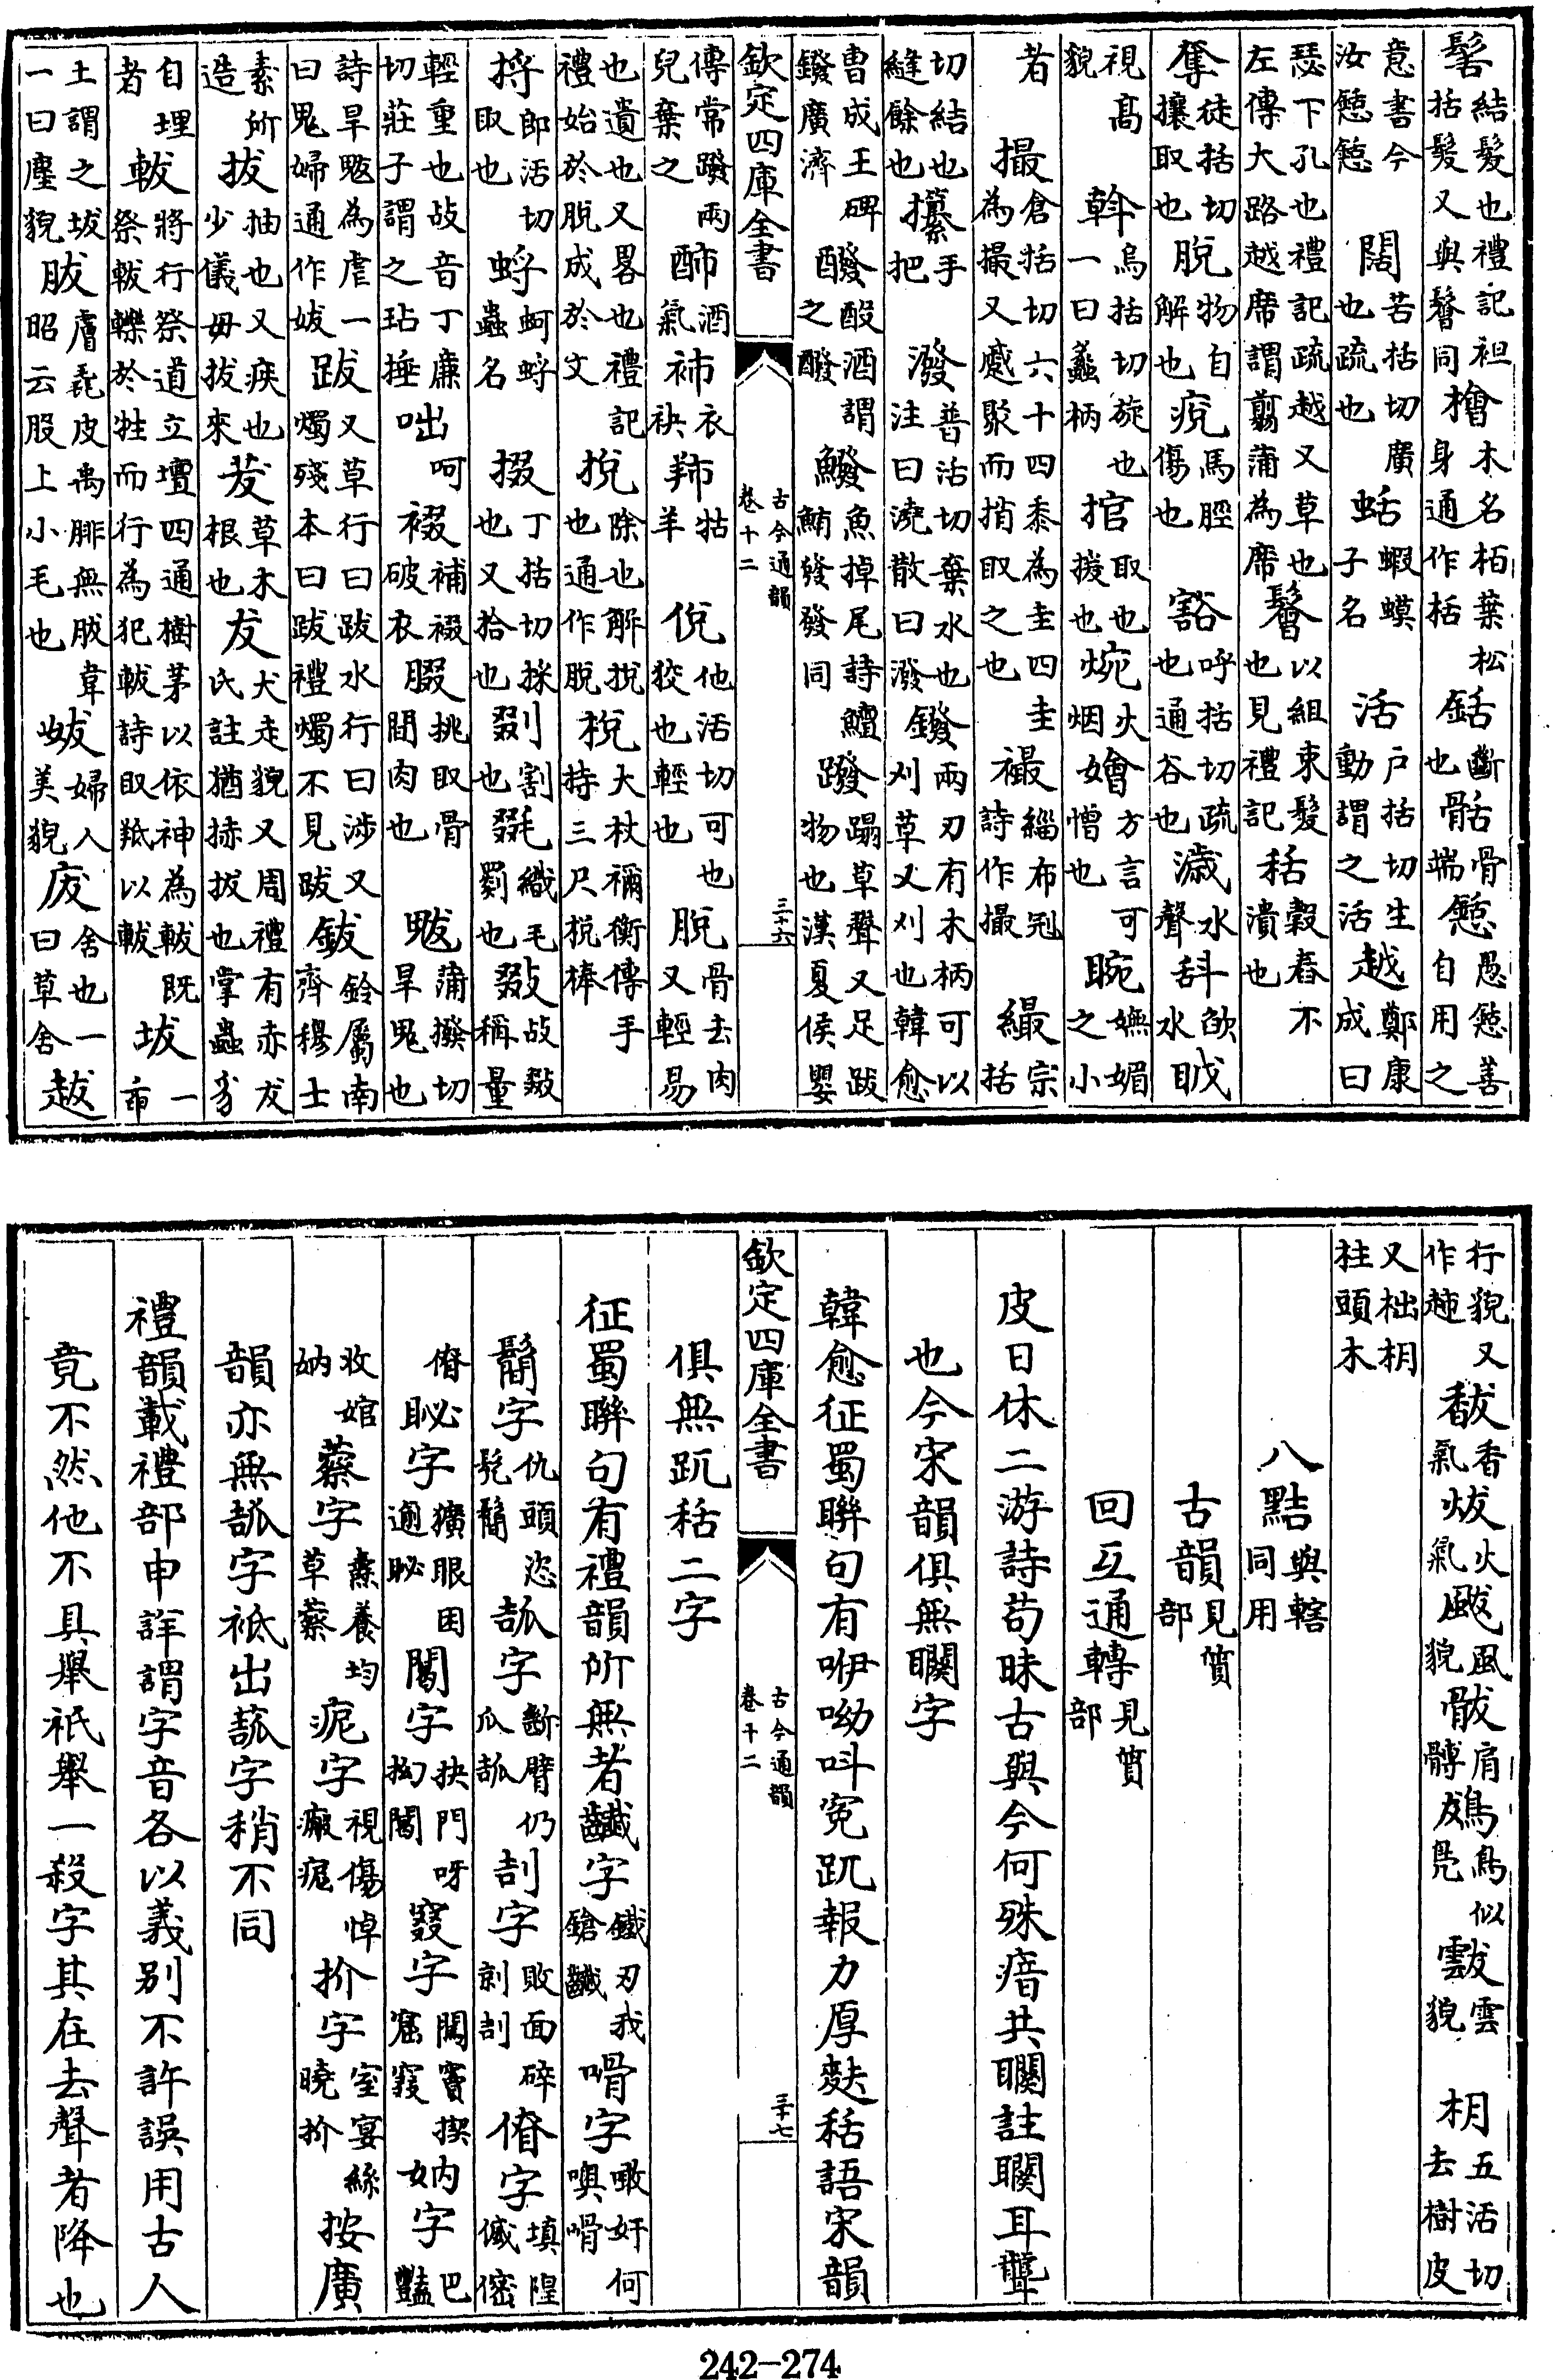 髺結髮也禮記袒括髮又與鬠同檜木名栢葉松身通作栝銛斷也骷骨端懖愚懖善自用之
意書今汝懖懖闊苦括切廣也疏也蛞蝦蟆子名活户括切生動謂之活越鄭康成曰
瑟下孔也禮記疏越又草也左傳大路越席謂翦蒲為席鬠以組束髮也見禮記秳穀舂不潰也
奪徒括切攘取也脫物自解也痥馬脛傷也豁呼括切疏也通谷也濊水聲㪁水䀛
視高貌斡烏括切旋也一曰蠡柄捾取也援也焥火烟嬒方言可憎也睕嫵媚之小
者撮倉括切六十四黍為圭四圭為撮又蹙聚而捎取之也襊緇布冠詩作撮繓宗括
切結也縫餘也攥手把潑普活切棄水也注曰澆散曰潑鏺兩刃有木柄可以刈草又刈也韓愈
曹成王碑鏺廣濟醱酘酒謂之醱鱍魚掉尾詩鱣鮪發發同蹳蹋草聲又足跋物也漢夏侯嬰
欽定四庫全書　古今通韻卷十二　三十六
傳常蹳兩兒棄之酺酒氣䄟衣袂牬羊侻他活切可也狡也輕也脫骨去肉又輕易
也遺也又畧也禮記禮始於脫成於文挩除也解挩也通作脫梲大杖禰衡傳手持三尺梲棒
捋郎活切取也蛶蚵蛶蟲名掇丁括切採也又拾也剟割也毲織毛罽也敠敁敠稱量
輕重也敁音丁廉切莊子謂之玷捶咄呵裰補裰破衣腏挑取骨間肉也魃蒲撥切旱鬼也
詩旱魃為虐一曰鬼婦通作妭跋又草行曰跋水行曰涉又燭殘本曰跋禮燭不見跋鈸鈴屬南齊穆士
素所造拔抽也又疾也少儀毋拔來茇草木根也犮犬走貌又周禮有赤犮氏註猶捇拔也掌蟲豸
自埋者軷將行祭道立壇四通樹茅以依神為軷既祭軷轢於牲而行為犯軷詩取羝以軷坺一
土謂之坺一曰塵貌胈膚毳皮禹腓無胈韋昭云股上小毛也妭婦人美貌废舍也一曰草舍越
行貌又作𧻙馛香氣炦火氣颰風貌骲肩髆鵖鳥似鳧䨚雲貌枂五活切去樹皮
又柮枂柱頭木
八黠與轄同用
古韻見質部
回互通轉見質部
皮日休二游詩苟昧古與今何殊瘖共䦧註䦧耳聾
也今宋韻俱無䦧字
韓愈征蜀聯句有咿呦叫冤趴報力厚麩秳語宋韻
欽定四庫全書　古今通韻卷十二　三十七
俱無趴秳二字
征蜀聯句有禮韻所無者䶪字鐵刃我鎗䶪嗗字噉奸何噢嗗
鬝字仇頭恣髡鬝㼋字斷臂仍瓜㼋刮字敗面碎剠刮傄字填隍㒝傄
傄䀣字獷眼困逾䀣䦪字抉門呀拗䦪窡字闖竇揳窟窡妠字巴豔
收婠妠蔡字蒸養均草蔡痆字視傷悼瘢痆扴字室宴絲曉扴按廣
韻亦無㼋字祗出𤬮字稍不同
禮韻載禮部申詳謂字音各以義别不許誤用古人
竟不然他不具舉祇舉一殺字其在去聲者降也
242-274